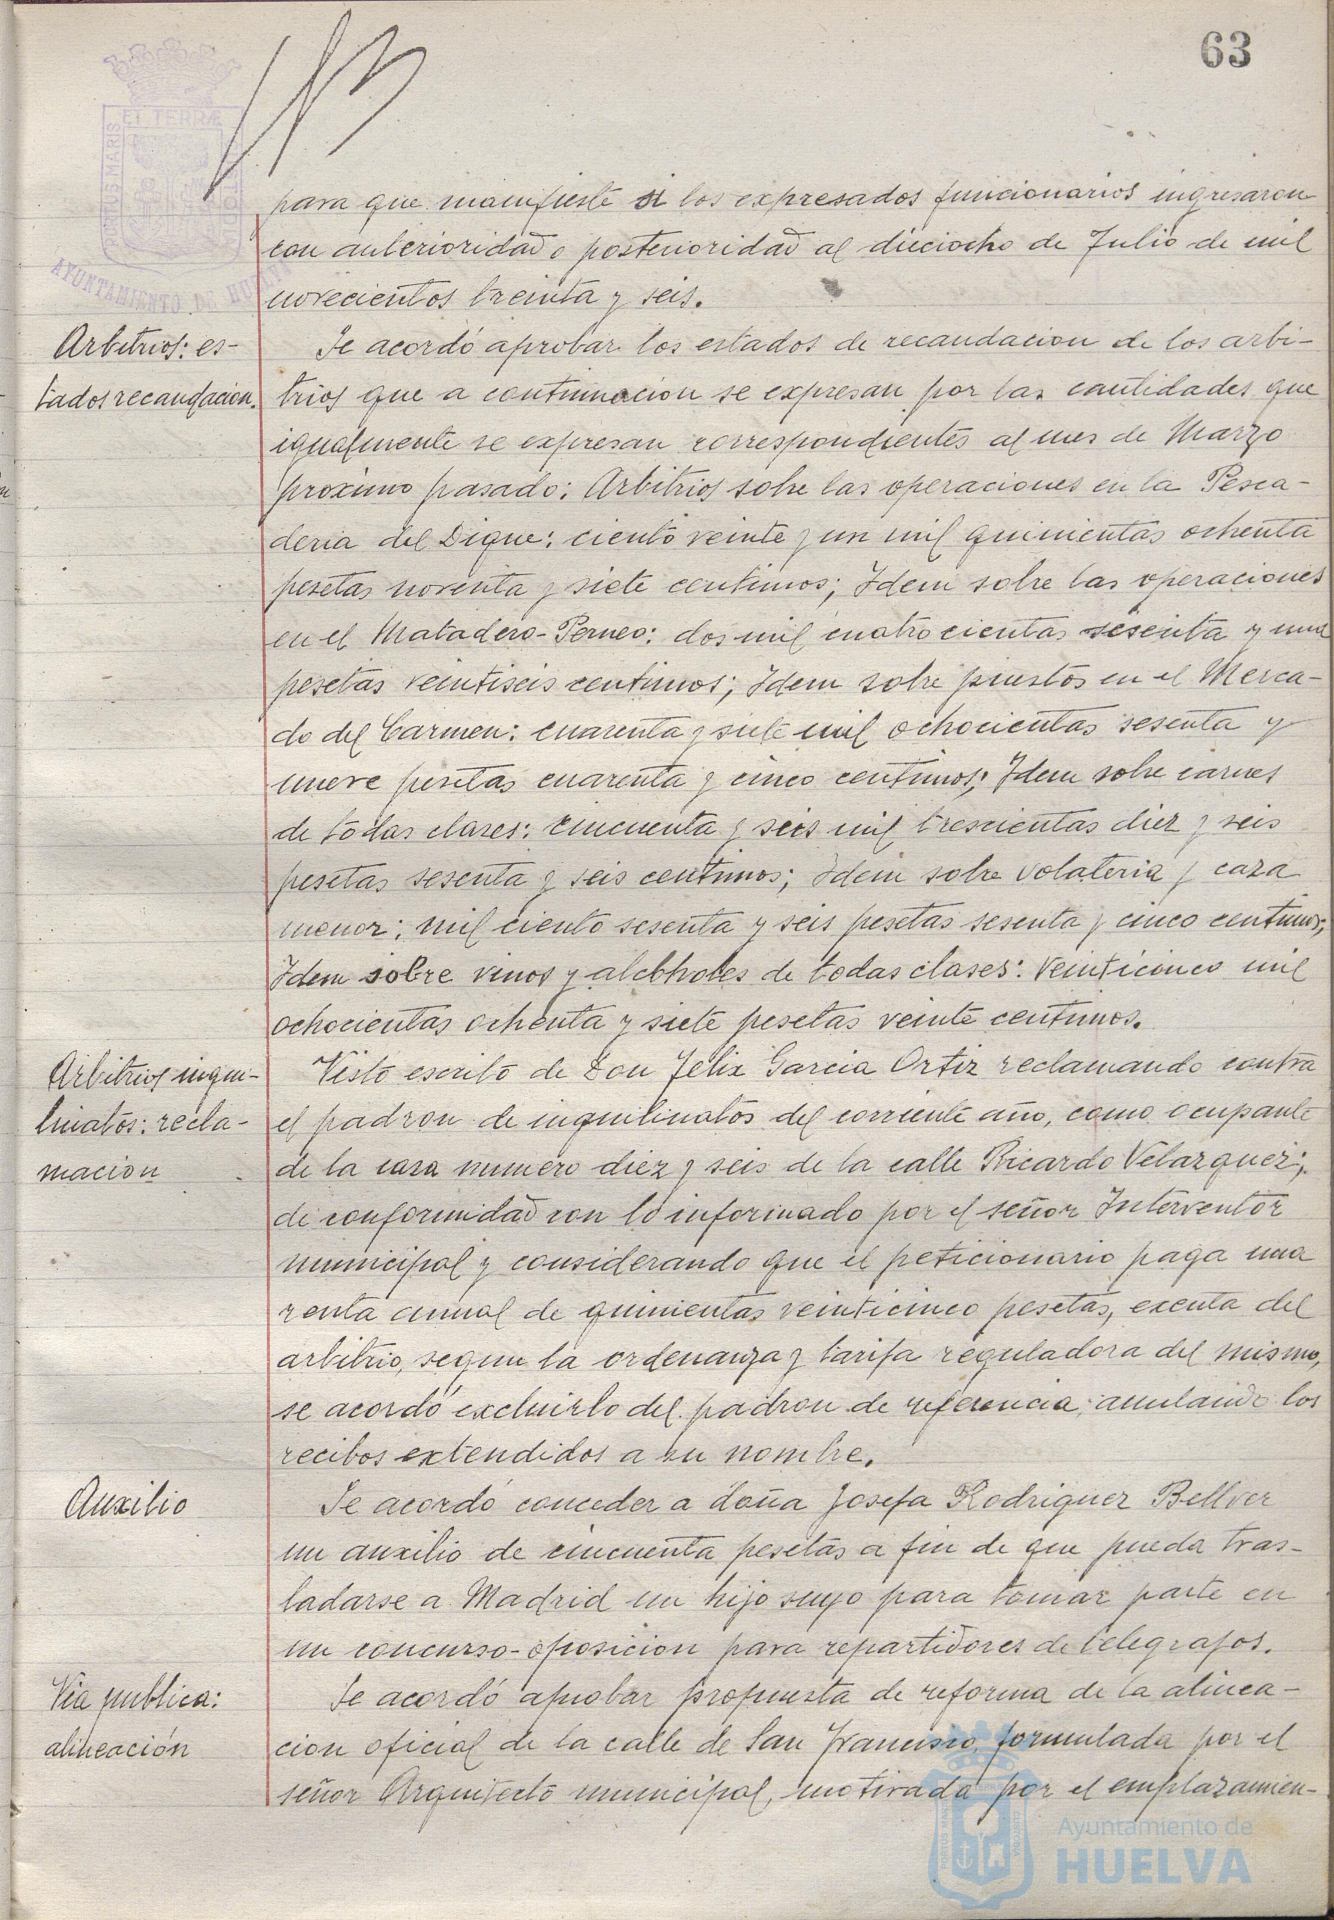 63
113
ET TERRÆ
PORTUS MARIS
AYUNTAMIENTO DE HUELVA
para que manifieste si los expresados funcionarios ingresaron
con anterioridad o posterioridad al dieciocho de Julio de mil
novecientos treinta y seis.
Arbitrios: es-
tados recaudacion.
Se acordó aprobar los estados de recaudacion de los arbi-
trios que a continuacion se expresan por las cantidades que
igualmente se expresan correspondientes al mes de Marzo
proximo pasado: Arbitrios sobre las operaciones en la Pesca-
deria del Dique: ciento veinte y un mil quinientas ochenta
pesetas noventa y siete centimos; Idem sobre las operaciones
en el Matadero-Perneo: dos mil cuatrocientas sesenta y una
pesetas veintiseis centimos; Idem sobre puestos en el Merca-
do del Carmen: cuarenta y siete mil ochocientas sesenta y
nueve pesetas cuarenta y cinco centimos; Idem sobre carnes
de todas clases: cincuenta y seis mil trescientas diez y seis
pesetas sesenta y seis centimos; Idem sobre volateria y caza
menor: mil ciento sesenta y seis pesetas sesenta y cinco centimos;
Idem sobre vinos y alcoholes de todas clases: veinticinco mil
ochocientas ochenta y siete pesetas veinte centimos.
Arbitrios inqui-
linatos: recla-
macion
Visto escrito de Don Felix Garcia Ortiz reclamando contra
el padron de inquilinatos del corriente año, como ocupante
de la casa numero diez y seis de la calle Ricardo Velazquez;
de conformidad con lo informado por el señor Interventor
municipal y considerando que el peticionario paga una
renta anual de quinientas veinticinco pesetas, exenta del
arbitrio, segun la ordenanza y tarifa reguladora del mismo,
se acordó excluirlo del padron de referencia, anulando los
recibos extendidos a su nombre.
Auxilio
Se acordó conceder a doña Josefa Rodriguez Bellver
un auxilio de cincuenta pesetas a fin de que pueda tras-
ladarse a Madrid un hijo suyo para tomar parte en
un concurso-oposicion para repartidores de telegrafos.
Via publica:
alineación
Se acordó aprobar propuesta de reforma de la alinea-
cion oficial de la calle de San Francisco, formulada por el
señor Arquitecto municipal, motivada por el emplazamien-
Ayuntamiento de
HUELVA